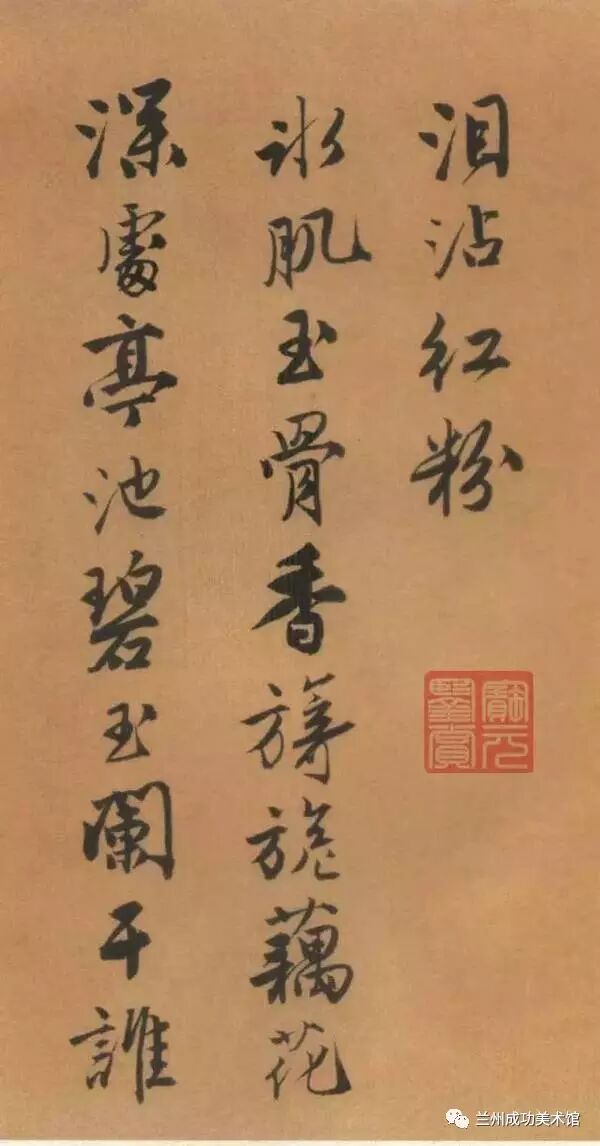 泪沾紅粉
冰肌玉骨香旖旎藕花
深處亭池碧玉闌干誰
兰州成功美术馆